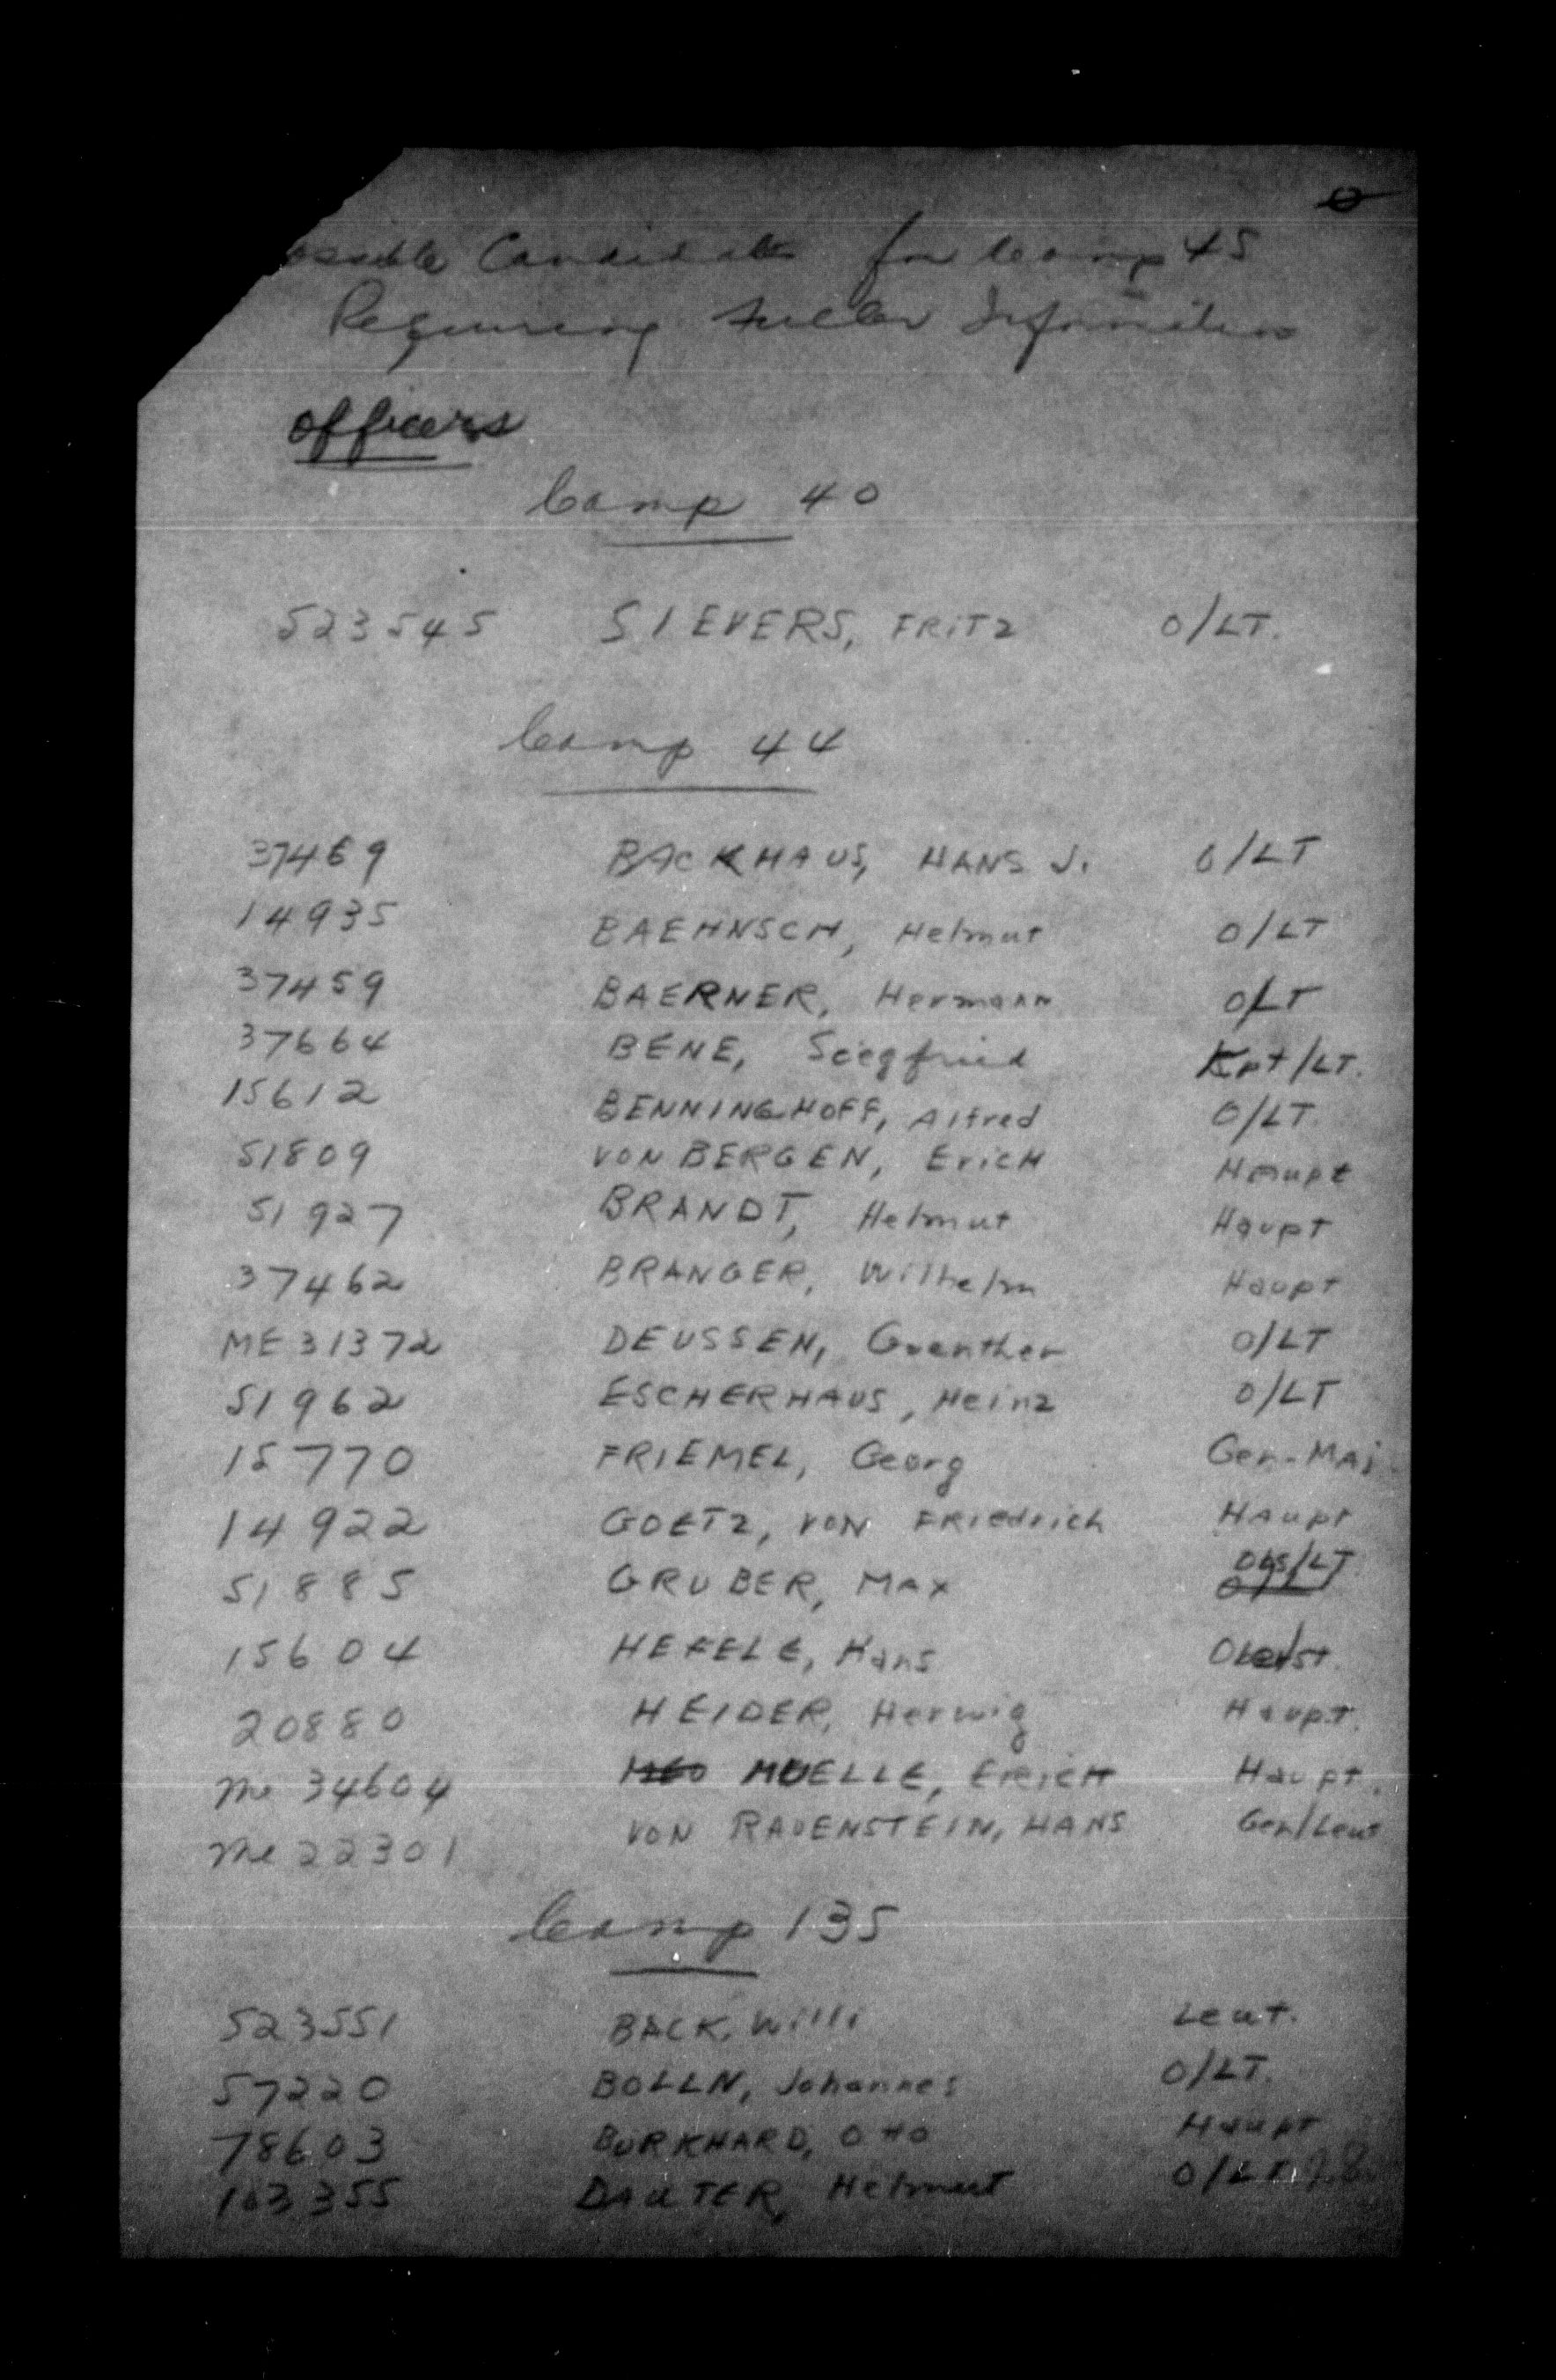 ossible Candidates for Camp 45
Requiring Fuller Information
officers
Camp 40
523545 SIEVERS, FRITZ O/LT.
Camp 44
37469 BACKHAUS, HANS J. O/LT
14935 BAEHNSCH, Helmut O/LT
37459 BAERNER, Hermann O/LT
37664 BENE, Siegfried Kpt/LT.
15612 BENNINGHOFF, Alfred O/LT.
51809 VON BERGEN, EricH Haupt
51927 BRANDT, Helmut Haupt
37462 BRANGER, Wilhelm Haupt
ME 31372 DEUSSEN, Guenther O/LT
51962 ESCHERHAUS, Heinz O/LT
15770 FRIEMEL, Georg Gen-MAj.
14922 GOETZ, VON FRIedrich HAupt
51885 GRUBER, MAx Obs/LT
15604 HEFELE, Hans Oberst.
20880 HEIDER, Herwig Haupt.
Me 34604 MUELLE, EricH Haupt.
Me 22301 VON RAVENSTEIN, HANS Gen/Leut
Camp 135
523551 BACK, Willi Leut.
57220 BOLLN, Johannes O/LT.
78603 BURKHARD, Otto Haupt
103355 DAUTER, Helmut O/LT